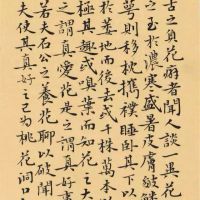 古之負花癖者聞人談一異花
之至於濃寒盛暑皮膚皴
萼則移枕攜襆睡臥其下以
於萎地而後去或千株萬本以
極其趣或嗅葉而知花之大
之謂真愛花是之謂真好事
若夫石公之養花聊以破閑
夫使其真好之已為桃花洞口